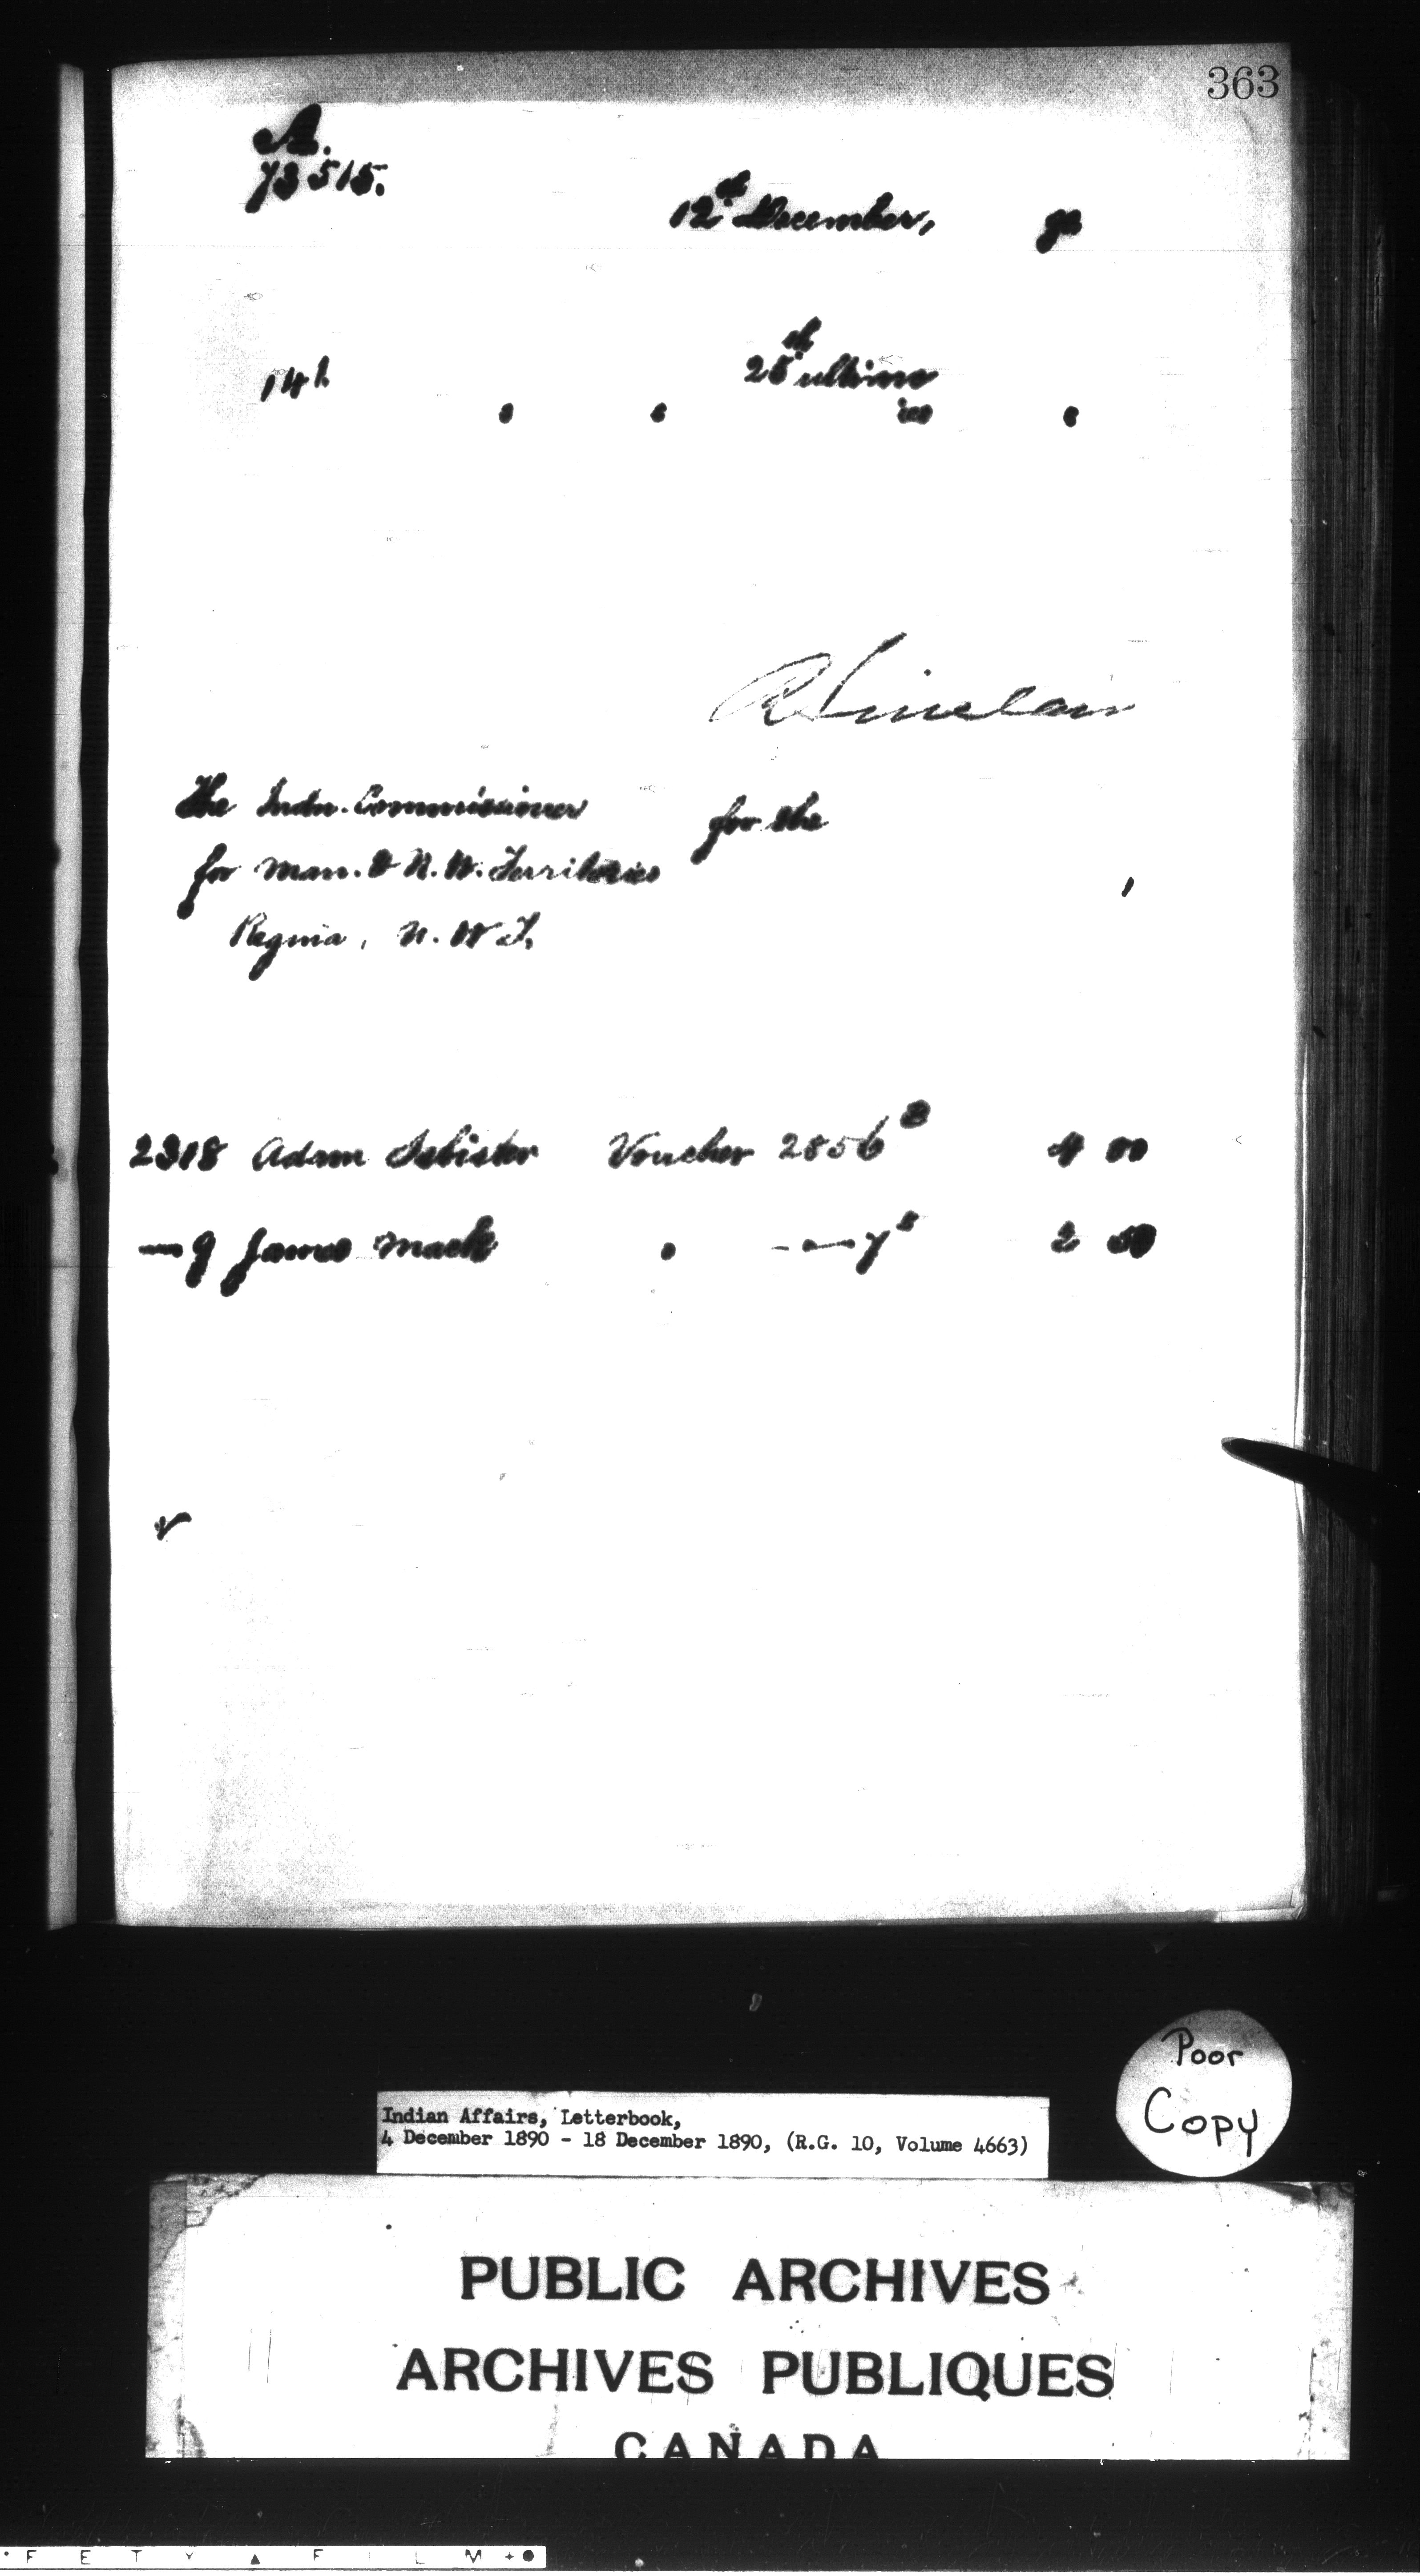 363
A.
73515.
12th December, 90
28th ultimo
14h
R Sinclair
The Indn. Commissioner for the
for Man. & N.W. Territories
Regina, N.W.T.
2318 Adam Isbister Voucher 2856 4 00
— 9 James Mack — 7 2 50
Poor
Copy
Indian Affairs, Letterbook,
4 December 1890 - 18 December 1890, (R.G. 10, Volume 4663)
PUBLIC ARCHIVES
ARCHIVES PUBLIQUES
CANADA
F E T Y ▲ F I L M + ●